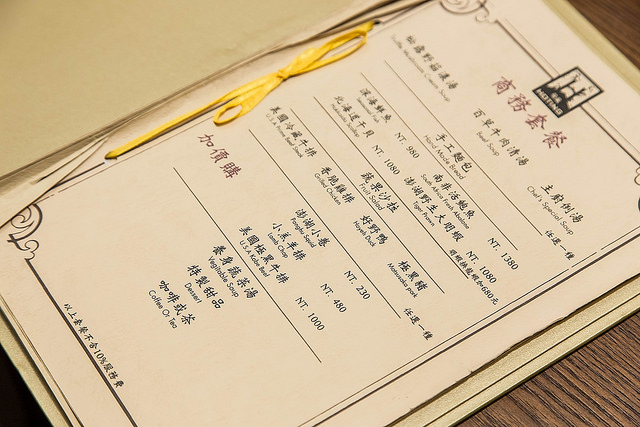 商務套餐
主廚例湯
Chef's Special Soup
任選一種
百草牛肉清湯
Beef Soup
松露野菇濃湯
Truffle Mushroom Cream Soup
手工麵包
Hand Made Bread
南非活鮑魚
South Africa Fresh Abalone
NT. 1380
澎湖野生大明蝦
Tiger Prawn
NT. 1080
680元
深海鮮魚
NT. 980
北海道干貝
Hokkaido Scallop
NT. 1080
蔬果沙拉
Fruit Salad
極黑豬
Matsusaka pork
任選一種
好野鴨
Haoyeh Duck
香燒雞排
Grilled Chicken
美國冷藏牛排
U.S.A Prime Beef Steak
加價購
澎湖小卷
Penghu Squid
NT. 230
小羔羊排
Lamb Chop
NT. 480
美國極黑牛排
U.S.A Kobe Beef
NT. 1000
養身蔬菜湯
Vegetable Soup
特製甜品
Dessert
咖啡或茶
Coffee Or Tea
以上套餐不含10%服務費